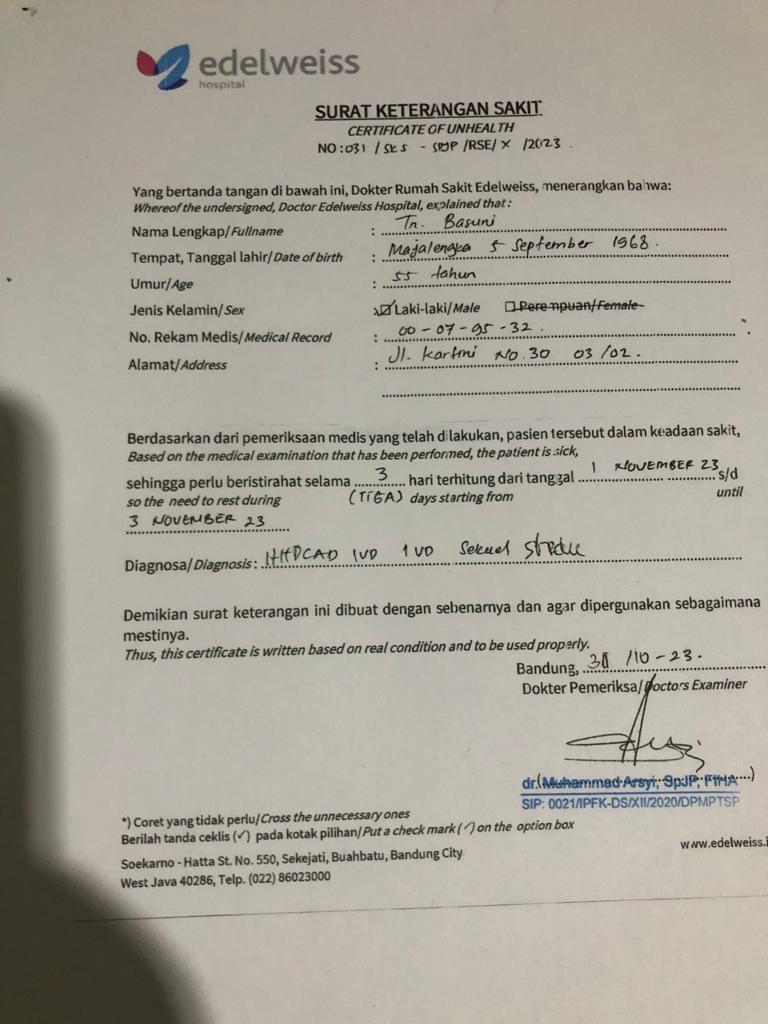 edelweiss
hospital
SURAT KETERANGAN SAKIT
CERTIFICATE OF UNHEALTH
NO: 031 / SKS - SPJP /RSE/ X /2023
Yang bertanda tangan di bawah ini, Dokter Rumah Sakit Edelweiss, menerangkan bahwa:
Whereof the undersigned, Doctor Edelweiss Hospital, explained that :
Nama Lengkap/Fullname : Tn. Basuni
Tempat, Tanggal lahir/Date of birth : Majalengka 5 September 1968.
Umur/Age : 55 tahun
Jenis Kelamin/Sex : ☑ Laki-laki/Male ☐ Perempuan/Female
No. Rekam Medis/Medical Record : 00-07-95-32.
Alamat/Address : Jl. Kartini NO.30 03/02.
Berdasarkan dari pemeriksaan medis yang telah dilakukan, pasien tersebut dalam keadaan sakit,
Based on the medical examination that has been performed, the patient is sick,
sehingga perlu beristirahat selama 3 hari terhitung dari tanggal 1 NOVEMBER 23 s/d
so the need to rest during (TIGA) days starting from until
3 NOVEMBER 23
Diagnosa/Diagnosis : HHD CAD 1VD 1VD
Demikian surat keterangan ini dibuat dengan sebenarnya dan agar dipergunakan sebagaimana
mestinya.
Thus, this certificate is written based on real condition and to be used properly.
Bandung, /10-23.
Dokter Pemeriksa/Doctors Examiner
dr.(Muhammad Arsyi, SpJP, FIHA)
SIP: 0021/IPFK-DS/XII/2020/DPMPTSP
*) Coret yang tidak perlu/Cross the unnecessary ones
Berilah tanda ceklis (✓) pada kotak pilihan/Put a check mark (✓) on the option box
Soekarno - Hatta St. No. 550, Sekejati, Buahbatu, Bandung City
West Java 40286, Telp. (022) 86023000
www.edelweiss.i